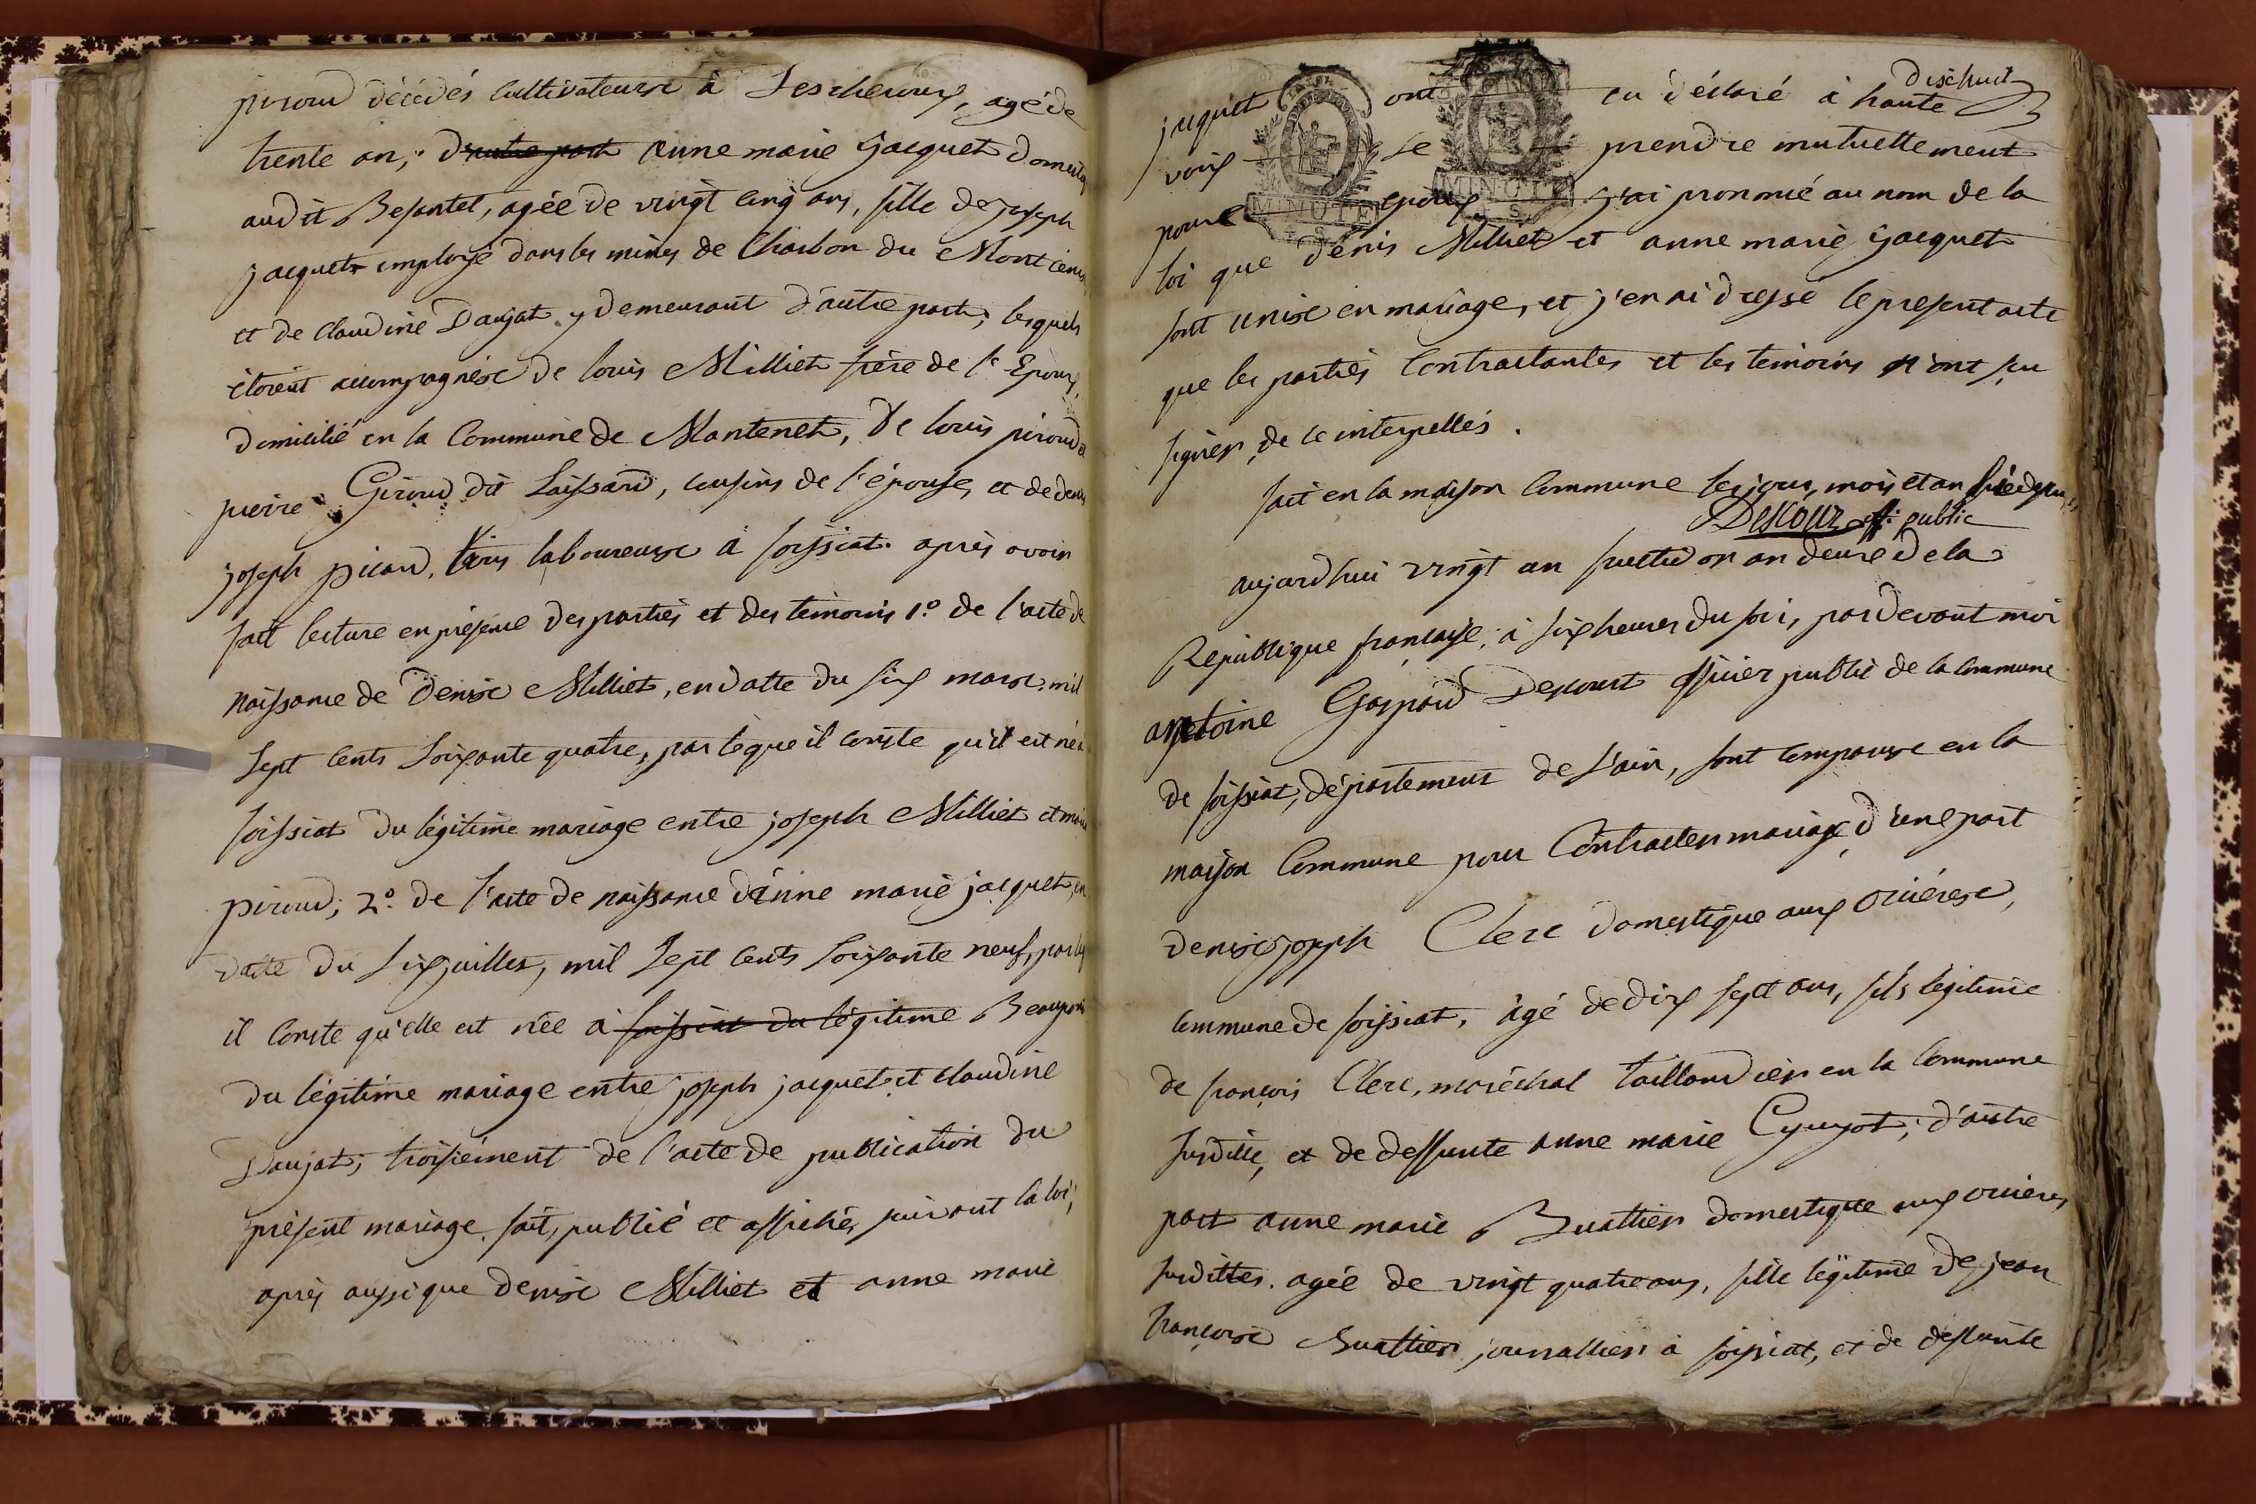 piroud décédés cultivateurse à Lescheroux, agé de
trente an, d'autre part anne marie Jacquet domicil
audit Besantet, agée de vingt cinq ans, fille de joseph
jacquet employé dans les mines de Charbon du Mont cenis
et de claudine Daujat y demeurant d'autre part; lesquels
étoient accompagnése de louis Milliet frère de l'Epoux,
domicilié en la Commune de Mantenet, De louis piroud et
pierre Giroud dit Laissard, cousins de l'épouse, et de denis
joseph picard, tous laboureurse à foissiat. après avoir
fait lecture en présence des parties et des temoins 1.º de l'acte de
naissance de denise Milliet, en datte du six marse mil
sept cents soixante quatre, par lequeil conste qu'il est né à
foissiat du légitime mariage entre joseph Milliet et marie
piroud; 2.º de l'acte de naissance d'anne marie jacquet, en
date du six juillet, mil sept cents soixante neuf, par lq
il conste qu'elle est née à foissiat du légitime Beaupon
du légitime mariage entre joseph jacquet et claudine
Daujat; troisiément de l'acte de publication du
présent mariage fait, publié et affiché, suivant la loi,
après aussi que denise Milliet et anne marie
dixhuit
jacquet ont eu déclaré à haute
voix se prendre mutuellement
pour époux j'ai prononcé au nom de la
MINUTE
MINUTE
loi que denis Milliet et anne marie Jacquet
sont unise en mariage, et j'en ai dressé le present acte
que les parties Contractantes et les temoins n'ont sçu
signer, de ce interpellés.
fait en la maison Commune les jour, mois et an susdits
Descour off. public
aujourdhui vingt un fructidor an deuxe de la
Republique françaisse, à six heures du soir, pardevant moi
antoine Gaspard Descourt officier public de la commune
de foissiat, département de l'ain, sont comparuse en la
maison Commune pour Contracter mariage d'une part
denise joseph Clerc domestique aux oriérese,
commune de foissiat, âgé de dix sept ans, fils légitime
de françois Clerc, maréchal taillandier en la Commune
susditte, et de deffunte anne marie Guyot; d'autre
part anne marie Buattier domestique aux orieres
susdittes. agée de vingt quatre ans, fille légitime de jean
françoise Buattier journallier à foissiat, et de deffunte